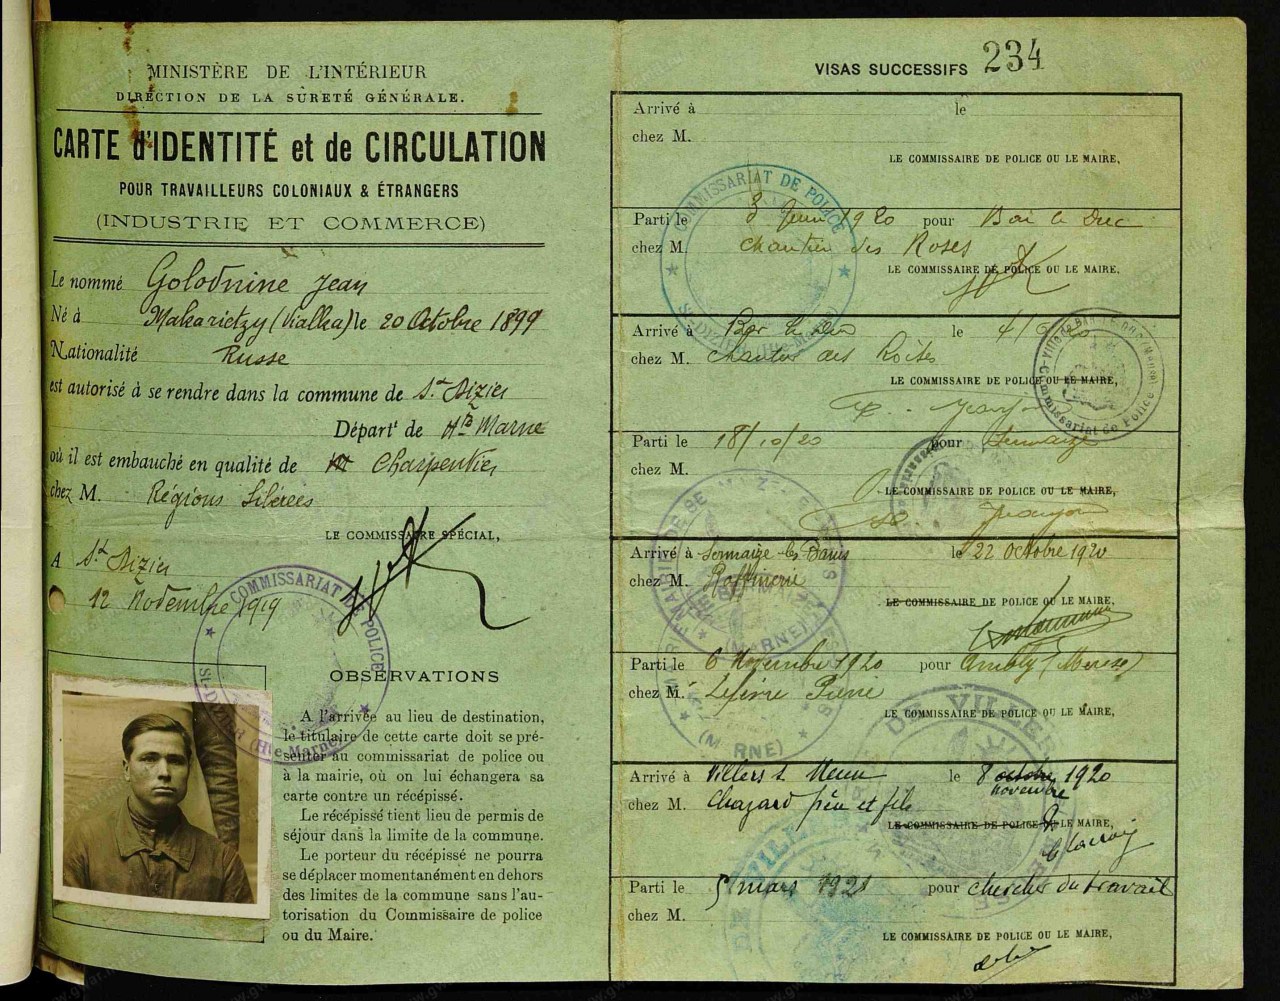 MINISTÈRE DE L'INTÉRIEUR
DIRECTION DE LA SÛRETÉ GÉNÉRALE.
CARTE d'IDENTITÉ et de CIRCULATION
POUR TRAVAILLEURS COLONIAUX & ÉTRANGERS
(INDUSTRIE ET COMMERCE)
Le nommé Golodnine Jean
Né à Makarietzy (Vialka) le 20 Octobre 1899
Nationalité Russe
est autorisé à se rendre dans la commune de St Dizier
Départt de Hte Marne
où il est embauché en qualité de Charpentier
chez M. Régions Libérées
LE COMMISSAIRE SPÉCIAL,
A St Dizier
12 Novembre 1919
COMMISSARIAT DE POLICE
St-DIZIER (Hte-Marne)
OBSERVATIONS
A l'arrivée au lieu de destination,
le titulaire de cette carte doit se pré-
senter au commissariat de police ou
à la mairie, où on lui échangera sa
carte contre un récépissé.
Le récépissé tient lieu de permis de
séjour dans la limite de la commune.
Le porteur du récépissé ne pourra
se déplacer momentanément en dehors
des limites de la commune sans l'au-
torisation du Commissaire de police
ou du Maire.
VISAS SUCCESSIFS 234
Arrivé à le
chez M.
LE COMMISSAIRE DE POLICE OU LE MAIRE,
COMMISSARIAT DE POLICE
St-DIZIER (Hte-Marne)
Parti le 3 Juin 1920 pour Bar le Duc
chez M. chantier des Roses
LE COMMISSAIRE DE POLICE OU LE MAIRE,
Arrivé à Bar le Duc le 4/6/20
chez M. chantier des Roises
LE COMMISSAIRE DE POLICE OU LE MAIRE,
Ville de BAR-LE-DUC (Meuse)
Commissariat de Police
Parti le 18/10/20 pour Sermaize
chez M.
LE COMMISSAIRE DE POLICE OU LE MAIRE,
Arrivé à Sermaize les Bains le 22 octobre 1920
chez M. Raffinerie
LE COMMISSAIRE DE POLICE OU LE MAIRE,
MAIRIE DE SERMAIZE-LES-BAINS
(MARNE)
Parti le 6 Novembre 1920 pour Ambly (Meuse)
chez M. Lefèvre Pierre
LE COMMISSAIRE DE POLICE OU LE MAIRE,
Arrivé à Villers s. Meuse le 8 octobre novembre 1920
chez M. Chazard père et fils
LE COMMISSAIRE DE POLICE OU LE MAIRE,
Parti le 5 mars 1921 pour chercher du travail
chez M.
LE COMMISSAIRE DE POLICE OU LE MAIRE,